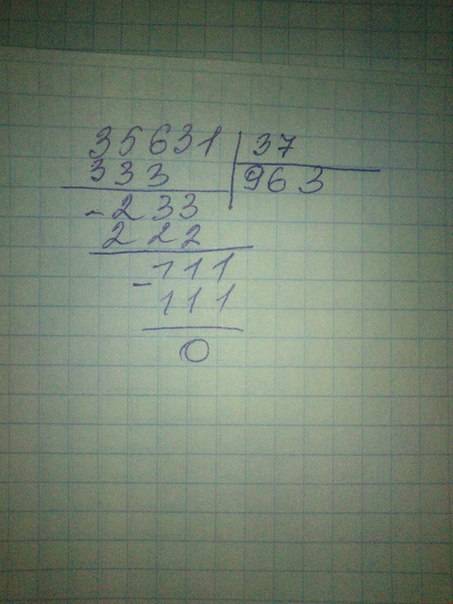 35631 37
333 963
-233
222
-111
111
0